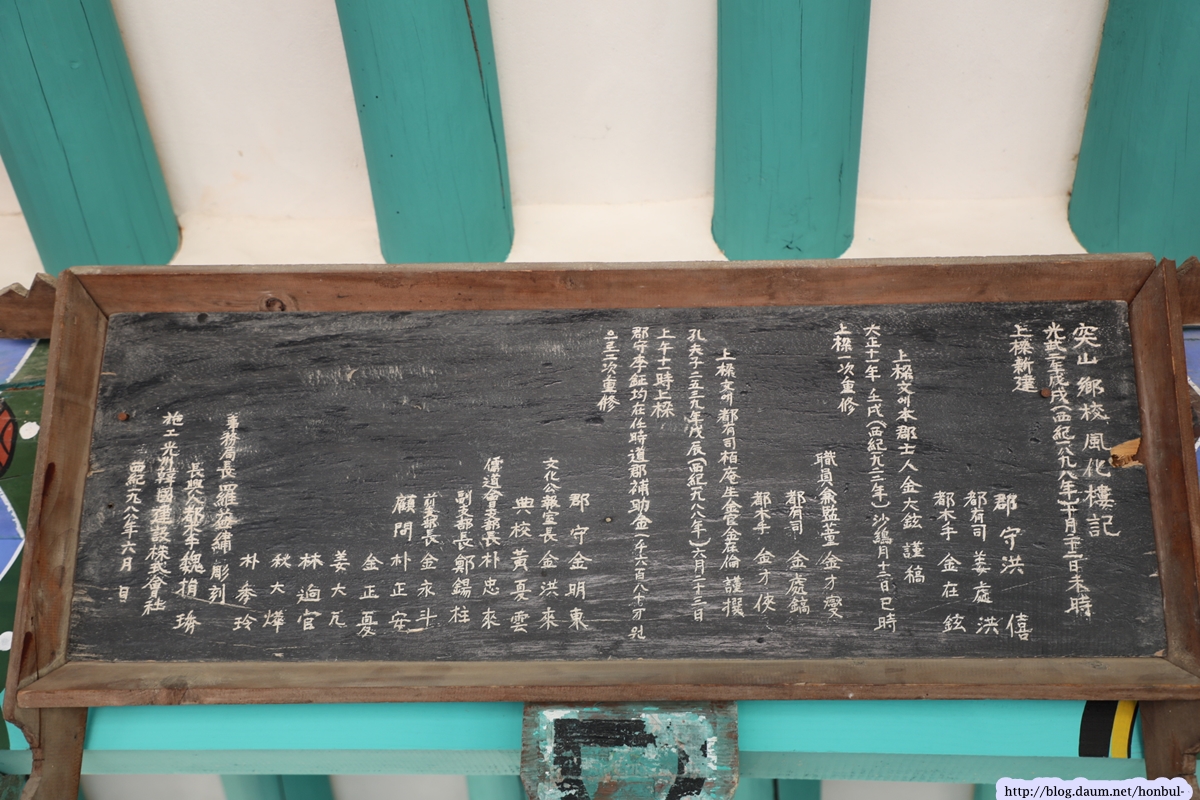 突山鄉校風化樓記
光武二年戊戌(西紀一八九八年)十月二十二日未時
上樑新建
郡守洪僖
都有司姜處洪
都木手金在鉉
上樑文에本郡士人金大鉉謹稿
大正十一年壬戌(西紀一九二二年)沙鷄月十二日巳時
上樑一次重修
職員兼監董金才燮
都有司金處鎬
都木手金才俠
上樑文에都有司栢庵生金容倫謹撰
孔夫子二五三九年戊辰(西紀一九八八年)六月二十三日
上午十一時上樑
郡守李鉦均在任時道郡補助金一千六百八十万원
으로二次重修
郡守金明東
文化公報室長金洪來
典校黃夏雲
儒道會支部長朴忠來
副支部長鄭錫柱
前支部長金永斗
顧問朴正安
金正夏
姜大元
林逈官
秋大燁
朴季玲
事務局長羅 繡彫刻
長興人都木手魏捐璾
施工光州韓國建設株式會社
西紀一九八八年六月 日
http://blog.daum.net/honbul-